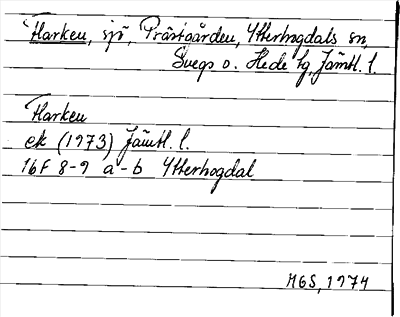 Flarken, sjö, Prästgården, Ytterhogdals sn,
Svegs o. Hede tg, Jämtl. l.
Flarken
ek (1973) Jämtl. l.
16F 8-9 a-b Ytterhogdal
MGS, 1974